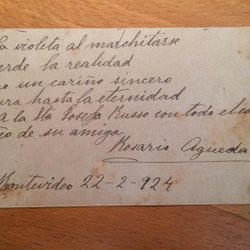 la violeta al marchitarse
erde la realidad
o un cariño sincero
ura hasta la eternidad
a la Sta Josefa Russo con todo el ca
o de su amiga
Rosario Agueda
Montevideo 22-2-924